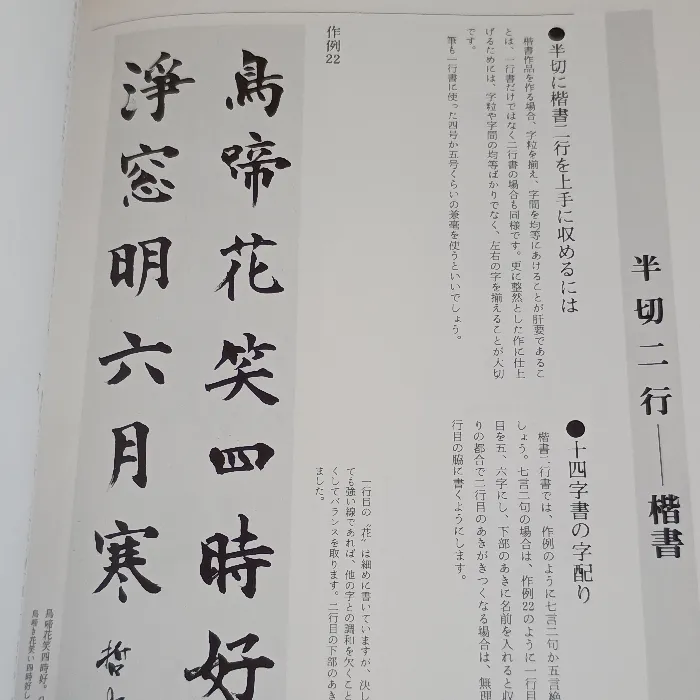 半切二行――楷書
●半切に楷書二行を上手に収めるには
楷書作品を作る場合、字粒を揃え、字間を均等にあけることが肝要であるこ
とは、一行書だけではなく二行書の場合も同様です。更に整然とした作に仕上
げるためには、字粒や字間の均等ばかりでなく、左右の字を揃えることが大切
です。
筆も一行書に使った四号か五号くらいの兼毫を使うといいでしょう。
●十四字書の字配り
楷書二行書では、作例のように七言二句か五言絶
しょう。七言二句の場合は、作例22のように一行目
目を五、六字にし、下部のあきに名前を入れると収
りの都合で二行目のあきがきつくなる場合は、無理
行目の脇に書くようにします。
一行目の“花”は細めに書いていますが、決し
ても強い線であれば、他の字との調和を欠くこと
くしてバランスを取ります。二行目の下部のあき
ました。
作例22
鳥啼花笑四時好
淨窓明六月寒
哲
鳥啼花笑四時好。
鳥啼き花笑い四時好し